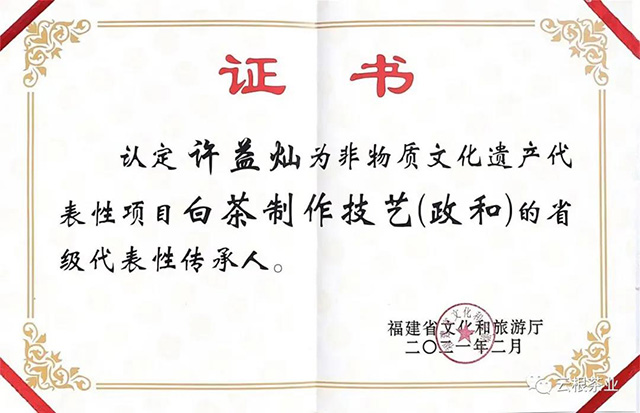 证书
认定许益灿为非物质文化遗产代
表性项目白茶制作技艺(政和)的省
级代表性传承人。
福建省文化和旅游厅
二〇二一年二月
云根茶业